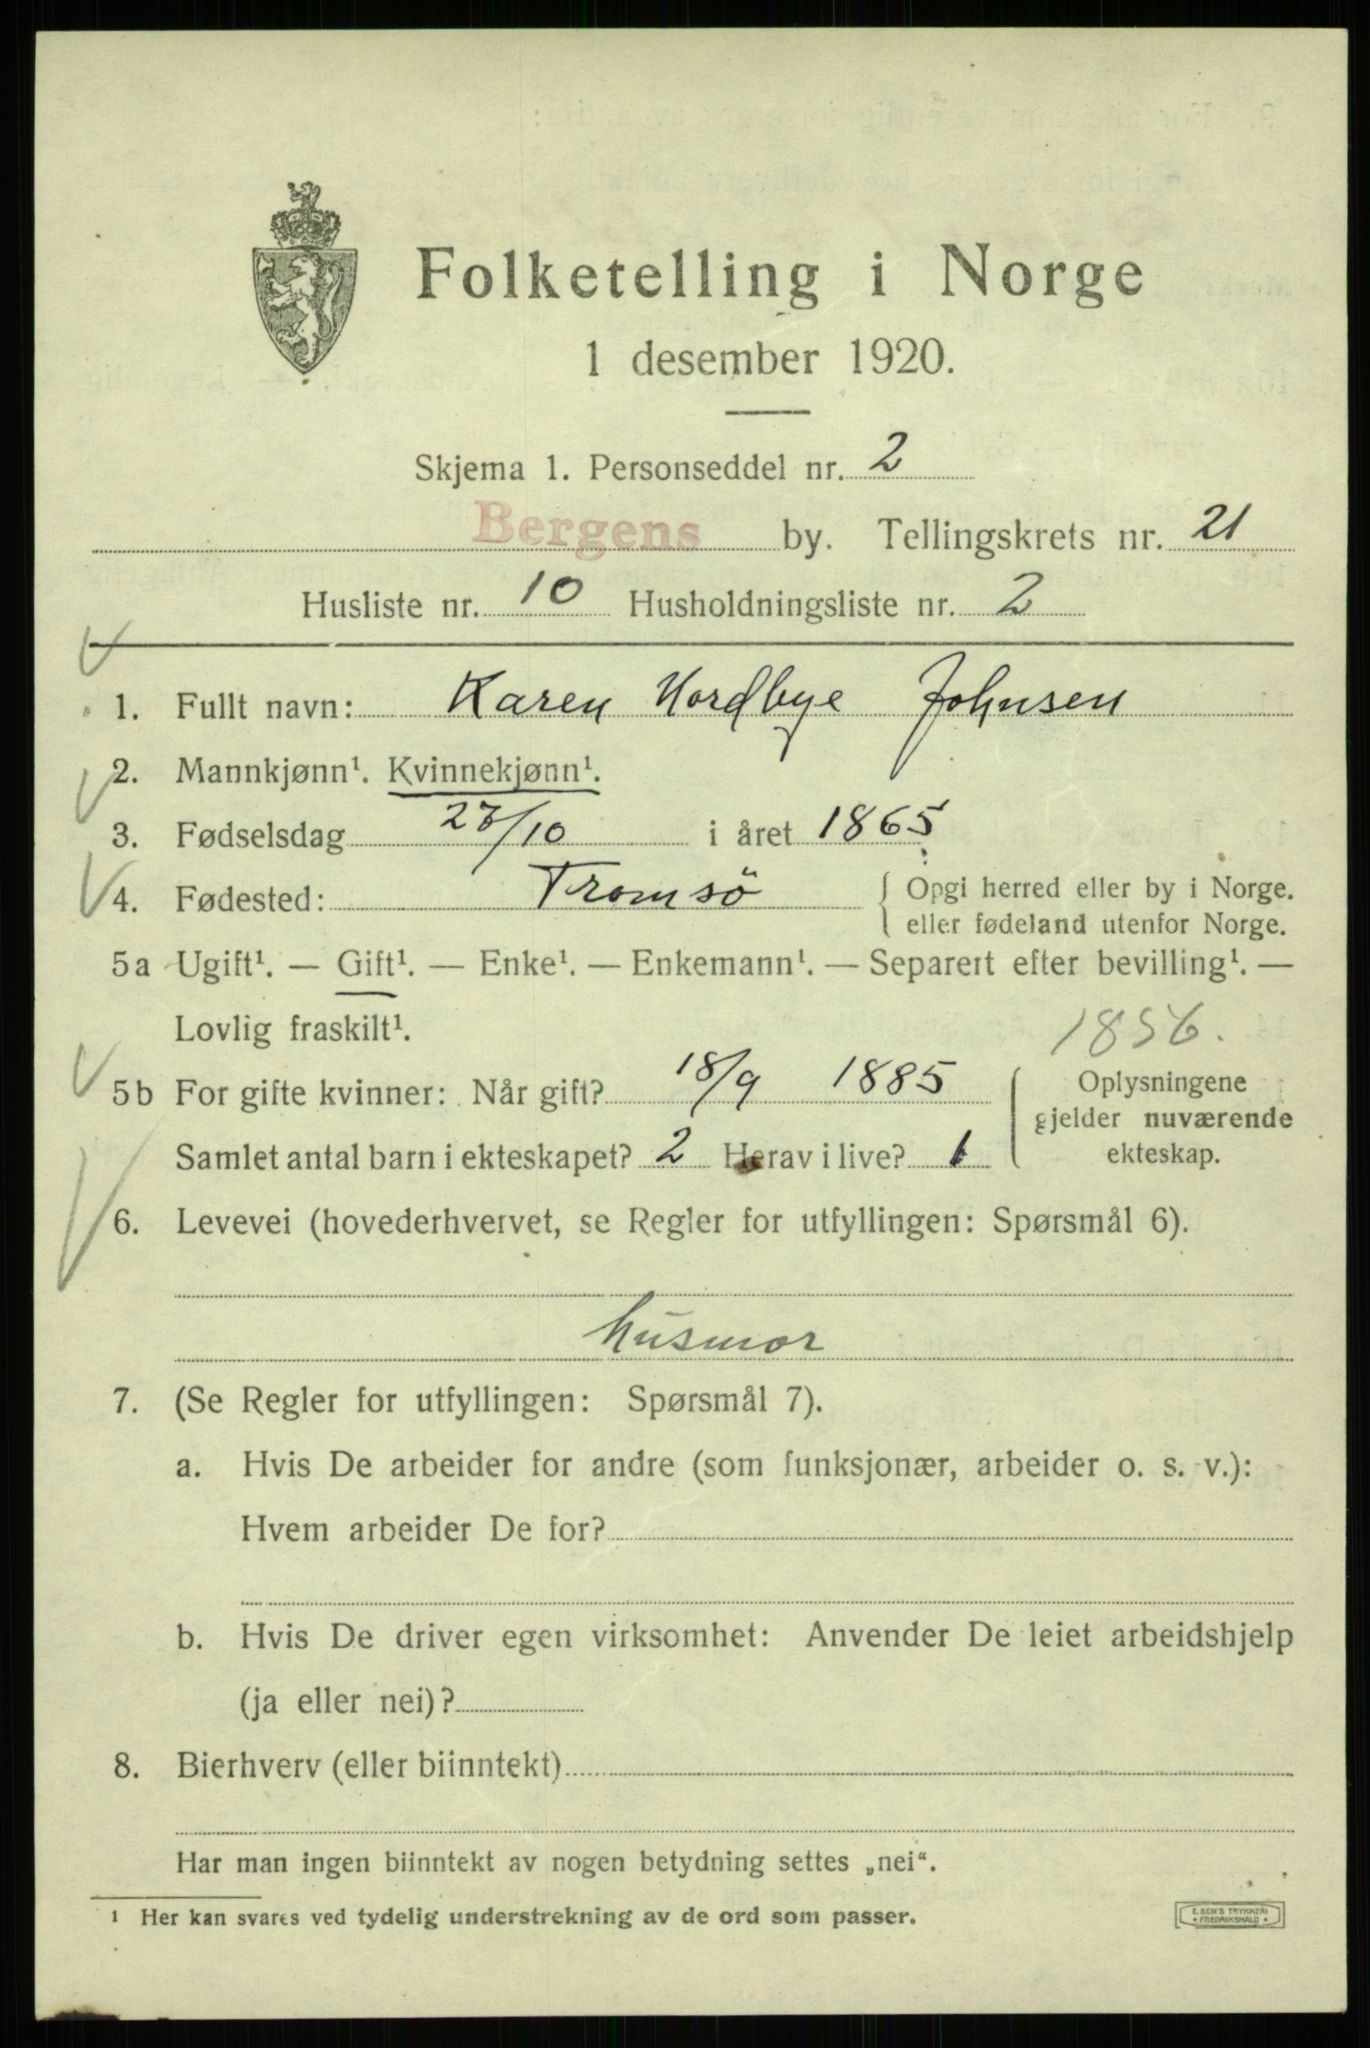 Folketelling i Norge
1 desember 1920.
Skjema 1. Personseddel nr. 2
Bergens by. Tellingskrets nr. 21
Husliste nr. 10 Husholdningsliste nr. 2
1. Fullt navn: Karen Nordbye Johnsen
2. Mannkjønn¹. Kvinnekjønn¹.
3. Fødselsdag /10 i året 1865
4. Fødested: Tromsö { Opgi herred eller by i Norge.
eller fødeland utenfor Norge.
5a Ugift¹. — Gift¹. — Enke¹. — Enkemann¹. — Separert efter bevilling¹. —
Lovlig fraskilt¹.
1856.
5b For gifte kvinner: Når gift? 18/9 1885
Samlet antal barn i ekteskapet? 2 Herav i live? 1
Oplysningene
gjelder nuværende
ekteskap.
6. Levevei (hovederhvervet, se Regler for utfyllingen: Spørsmål 6).
husmor
7. (Se Regler for utfyllingen: Spørsmål 7).
a. Hvis De arbeider for andre (som funksjonær, arbeider o. s. v.):
Hvem arbeider De for?
b. Hvis De driver egen virksomhet: Anvender De leiet arbeidshjelp
(ja eller nei)?
8. Bierhverv (eller biinntekt)
Har man ingen biinntekt av nogen betydning settes „nei“.
¹ Her kan svares ved tydelig understrekning av de ord som passer.
E. SEM'S TRYKKERI
* FREDRIKSHALD *